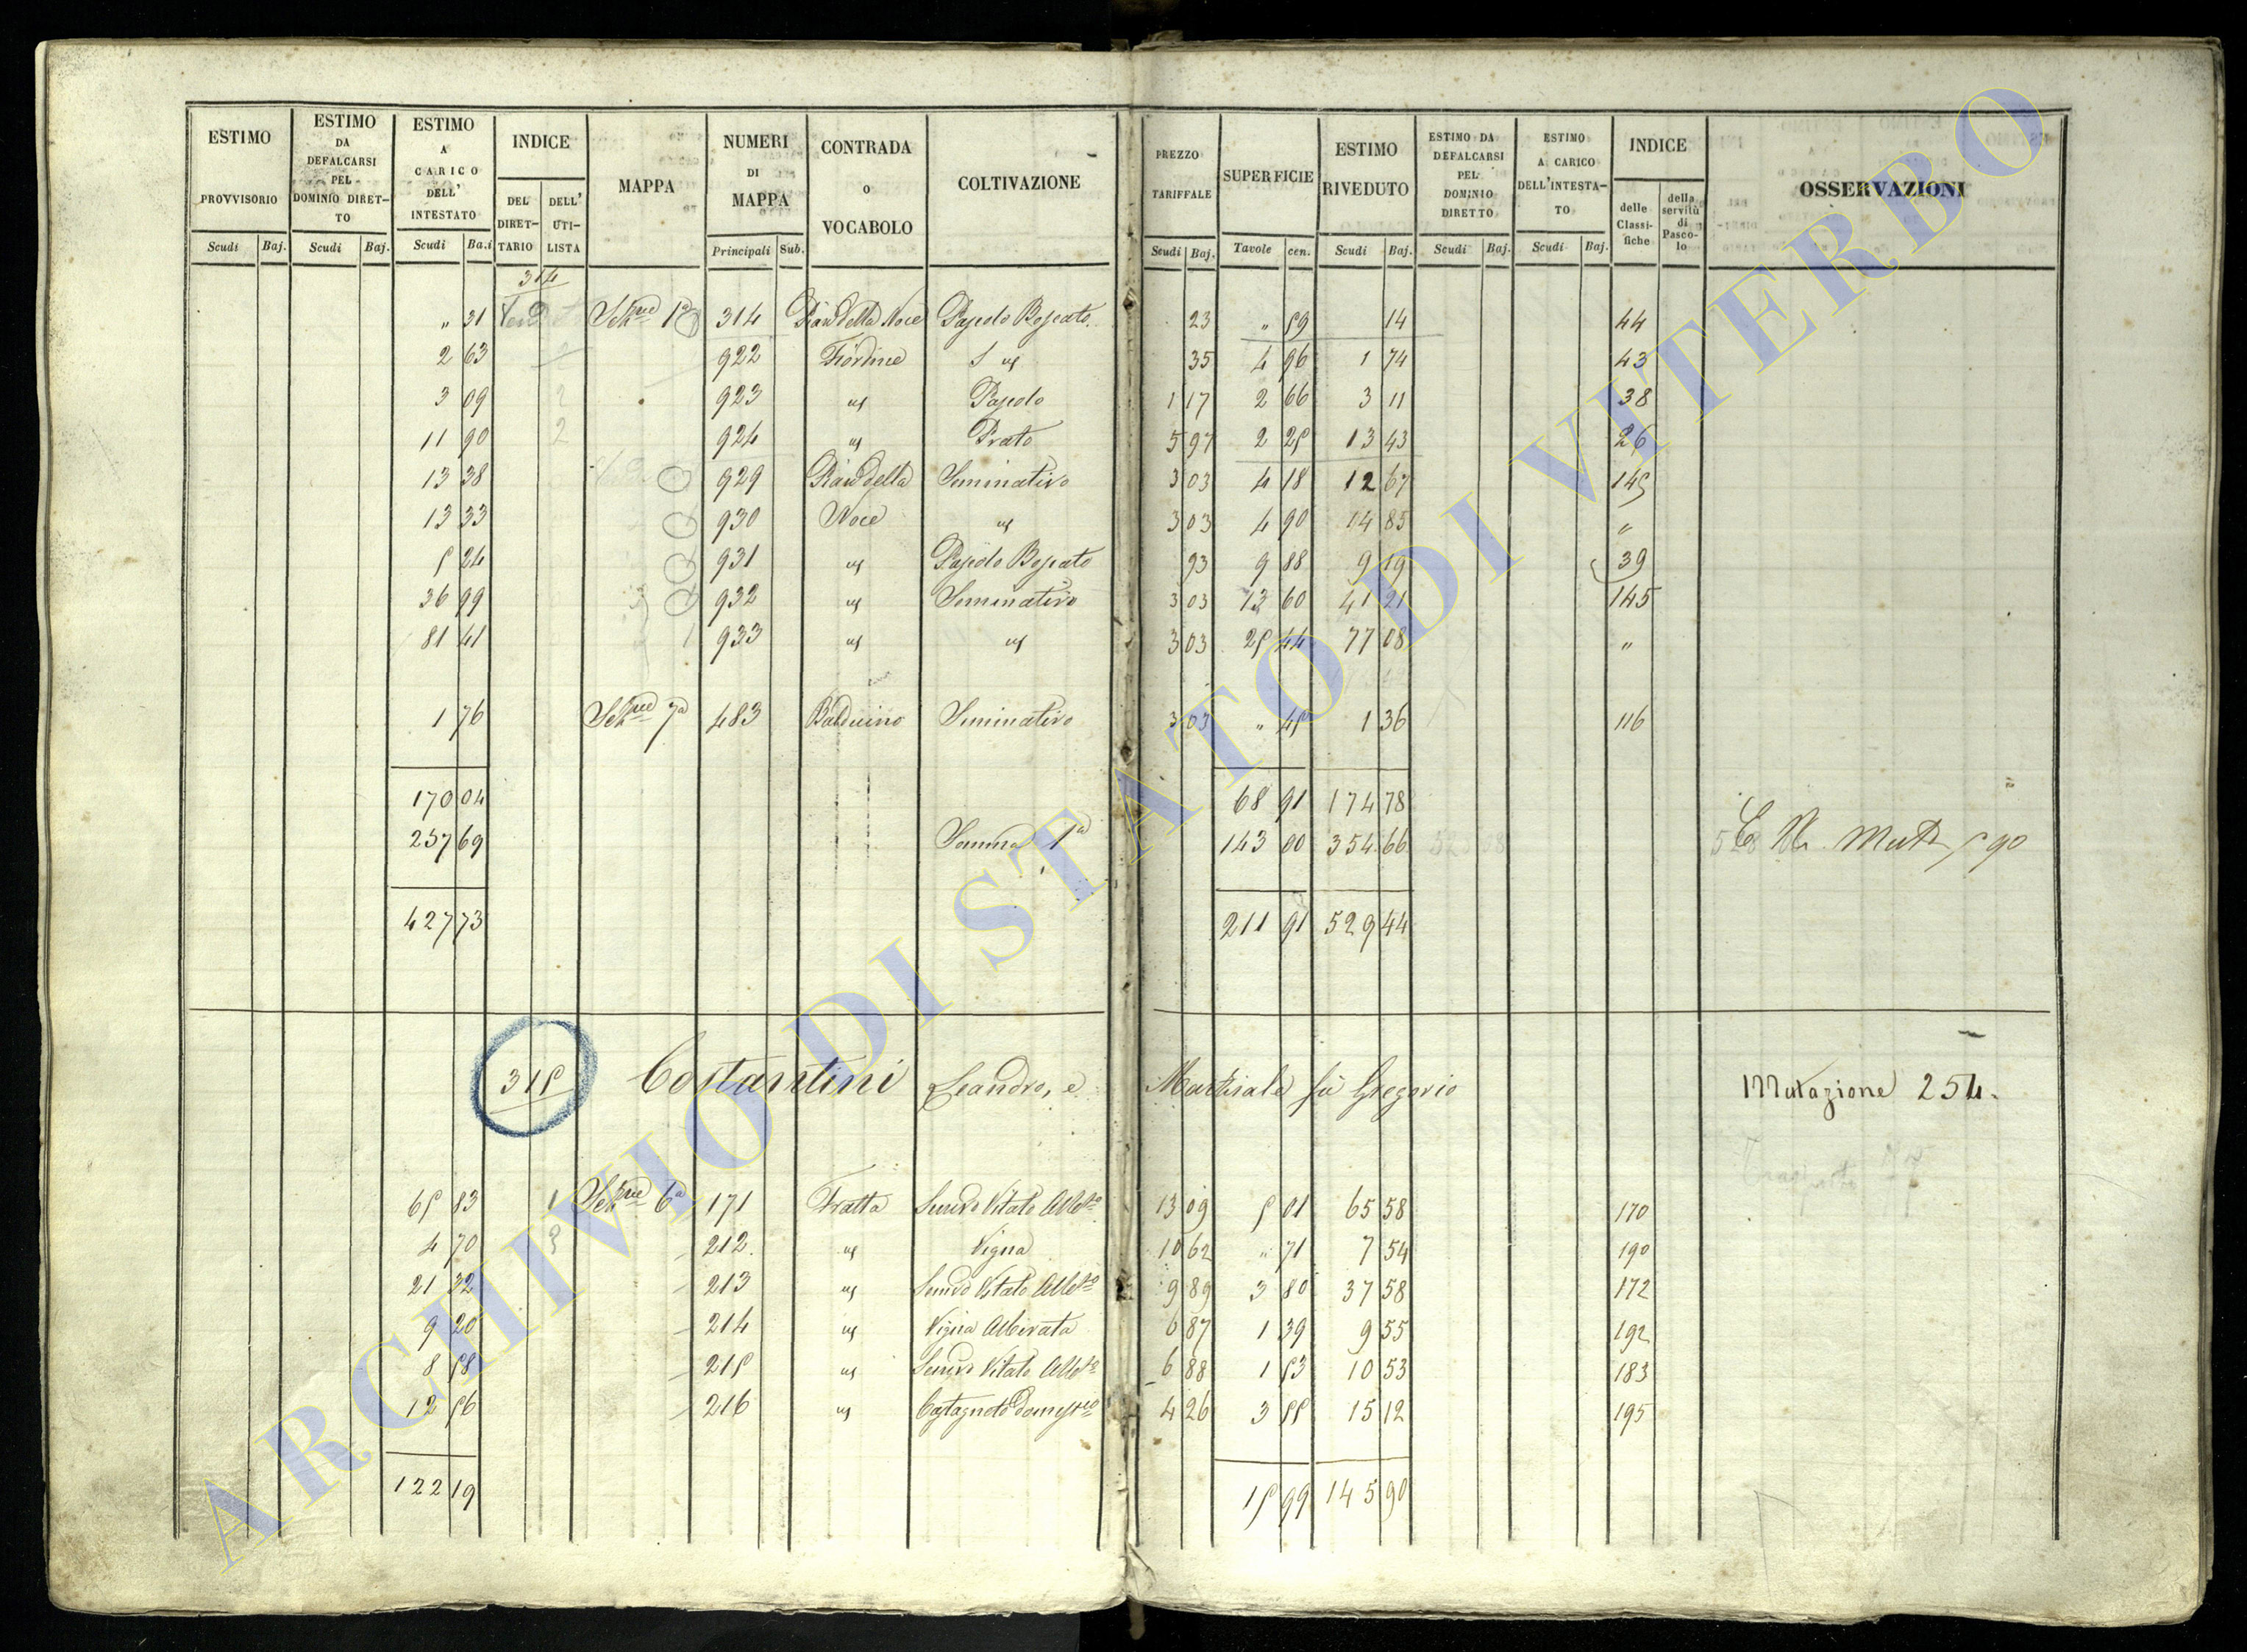 ESTIMO PROVVISORIO
Scudi Baj.
ESTIMO DA DEFALCARSI PEL DOMINIO DIRET-TO
Scudi Baj.
ESTIMO A CARICO DELL' INTESTATO
Scudi Ba.i
INDICE
DEL DIRET-TARIO
DELL' UTI-LISTA
MAPPA
NUMERI DI MAPPA
Principali Sub.
CONTRADA o VOCABOLO
COLTIVAZIONE
PREZZO TARIFFALE
Scudi Baj.
SUPERFICIE
Tavole cen.
ESTIMO RIVEDUTO
Scudi Baj.
ESTIMO DA DEFALCARSI PEL DOMINIO DIRETTO
Scudi Baj.
ESTIMO A CARICO DELL'INTESTA-TO
Scudi Baj.
INDICE
delle Classi-fiche
della servitù di Pasco-lo
OSSERVAZIONI
314
" 31 314 Pian della Noce Pascolo Boscato 23 " 59 14 44
2 63 922 Fiordine 35 4 96 1 74 43
3 09 2 923 " Pascolo 1 17 2 66 3 11 38
11 90 2 924 " Prato 5 97 2 25 13 43 26
13 38 929 Pian della Seminativo 3 03 4 18 12 67 145
13 33 930 Noce " 3 03 4 90 14 85 "
5 24 931 " Pascolo Boscato 93 9 88 9 19 39
36 99 932 " Seminativo 3 03 13 60 41 21 145
81 41 933 " " 3 03 25 44 77 08 "
1 76 Sez.ne 7a 483 Balduino Seminativo 3 03 " 45 1 36 116
170 04 68 91 174 78
257 69 Somma 1a 143 00 354 66
427 73 211 91 529 44
315 Costantini Leandro, e Martiale fu Gregorio Mutazione 254.
65 83 1 Sez.ne 6a 171 Fratta Semivo Vitato Alb.to 13 09 5 01 65 58 170
4 70 212. " Vigna 10 62 " 71 7 54 190
21 32 213 " Semivo Vitato Alb.to 9 89 3 80 37 58 172
9 20 214 " Vigna Alberata 6 87 1 39 9 55 192
8 58 215 " Semivo Vitato Alb.to 6 88 1 53 10 53 183
12 56 216 " Castagneto domestico 4 26 3 55 15 12 195
122 19 15 99 145 90
ARCHIVIO DI STATO DI VITERBO